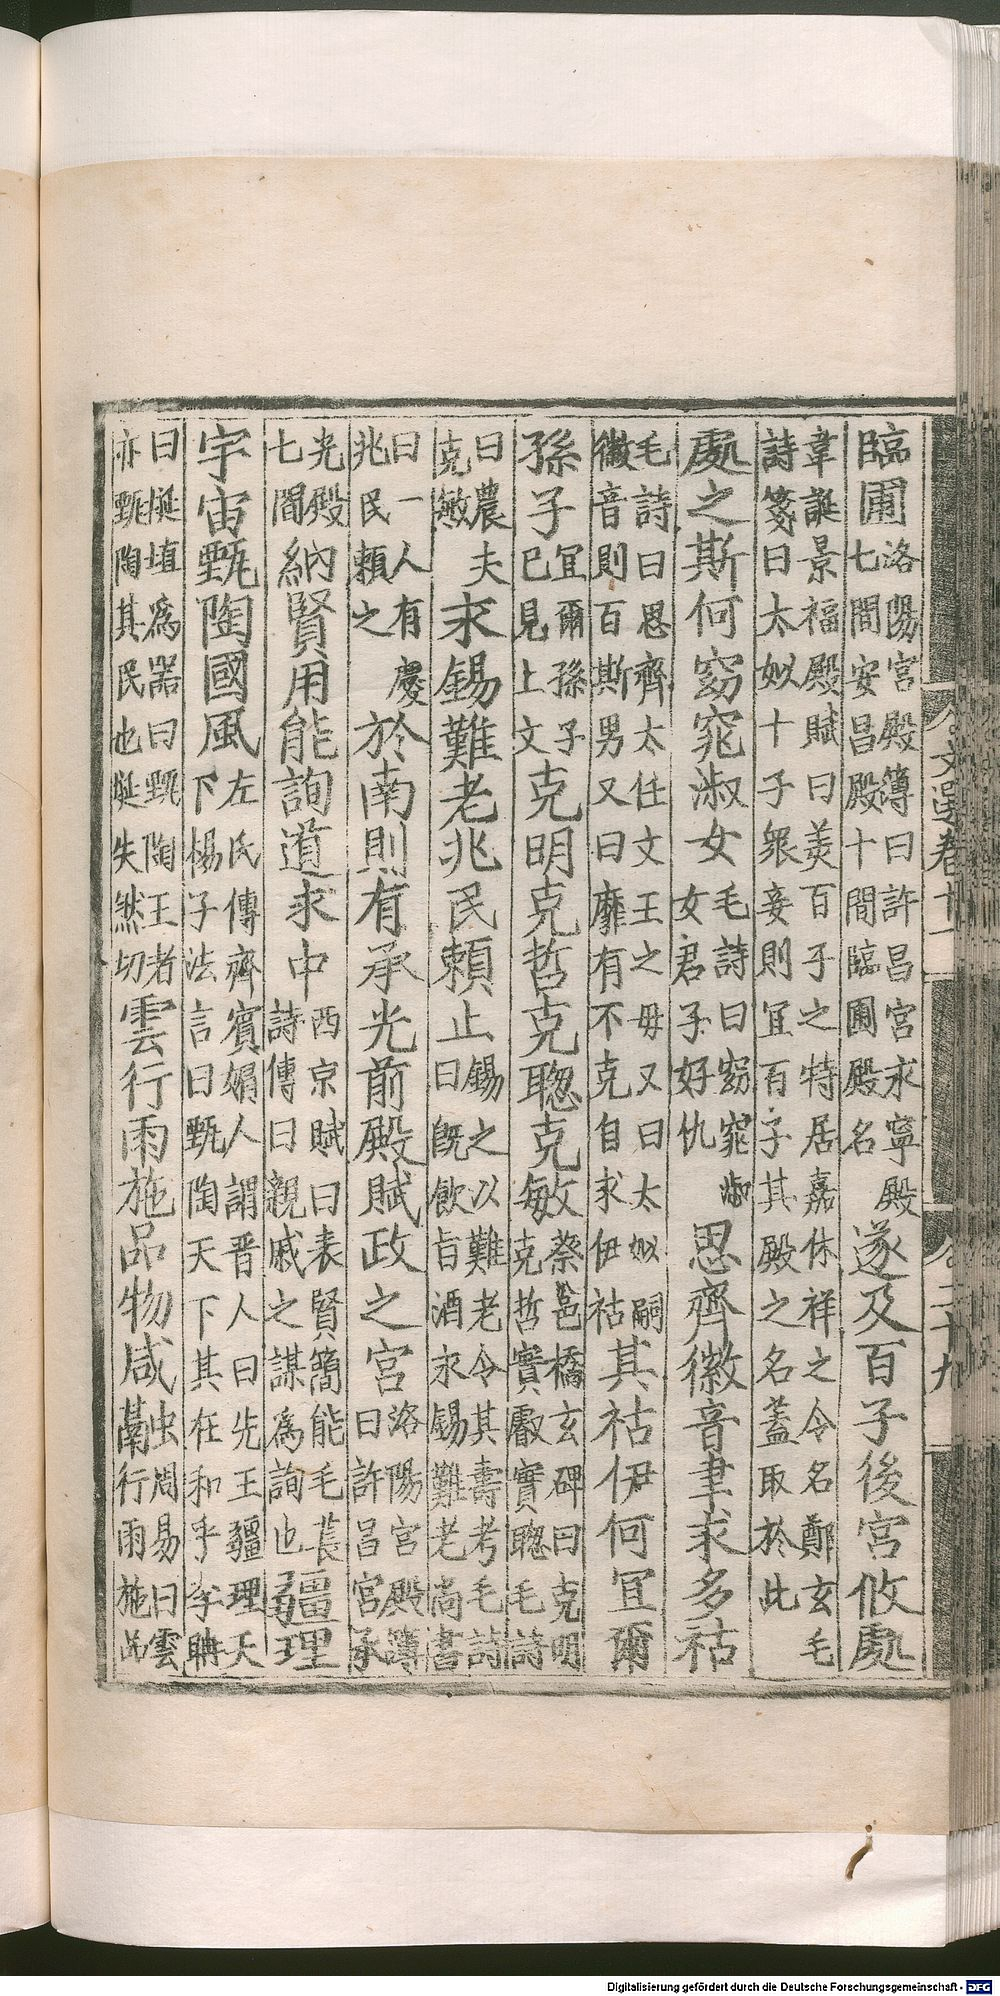 文選卷十一
二十九
臨圃
洛陽宮殿簿曰許昌宮求寧殿
七間安昌殿十間臨圃殿名
遂及百子後宮攸處
韋誕景福殿賦曰美百子之特居嘉休祥之令名鄭玄毛
詩箋曰太姒十子衆妾則冝百子其殿之名蓋取於此
處之斯何窈窕淑女
毛詩曰窈窕淑
女君子好仇
思齊徽音聿求多祜
毛詩曰思齊太任文王之毋又曰太姒嗣
徽音則百斯男又曰靡有不克自求伊祜
其祜伊何冝爾
孫子
冝爾孫子
巳見上文
克明克哲克聦克敏
蔡邕橋玄碑曰克明
克哲實叡實聦毛詩
曰農夫
克敏
求錫難老兆民賴止
錫之以難老令其壽考毛詩
曰旣飮旨酒求錫難老尚書
曰一人有慶
兆民賴之
於南則有承光前殿賦政之宮
洛陽宮殿簿
曰許昌宮承
光殿
七間
納賢用能詢道求中
西京賦曰表賢簡能毛萇
詩傳曰親戚之謀爲詢也
疆理
宇宙甄陶國風
左氏傳齊賓媚人謂晋人曰先王疆理天
下楊子法言曰甄陶天下其在和乎李聃
曰埏埴爲器曰甄陶王者
亦甄陶其民也埏失然切
雲行雨施品物咸融
周易曰雲
行雨施
Digitalisierung gefördert durch die Deutsche Forschungsgemeinschaft - DFG